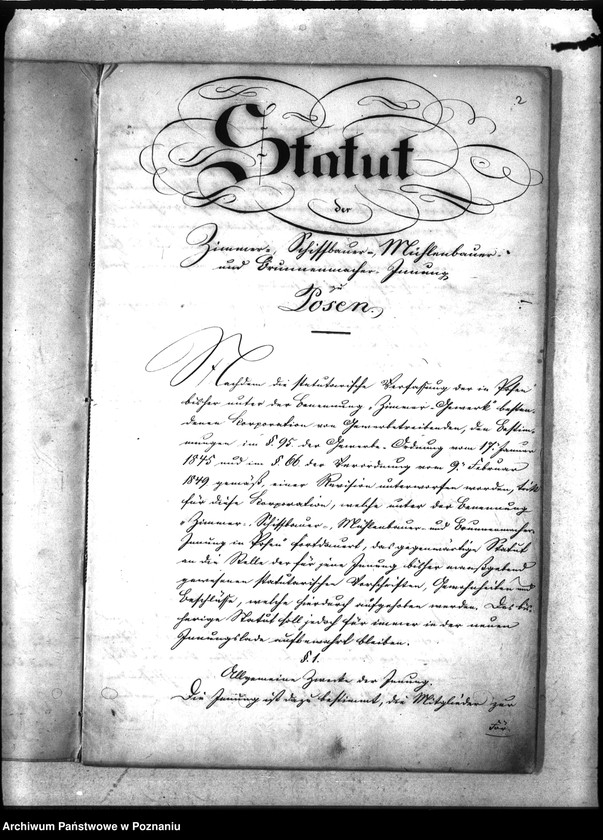 2
Statut
der
Zimmer-, Schiffbauer-, Mühlenbauer-
und Brunnenmacher-Innung
zu
Posen.
Nachdem die statutarische Verfassung der in Posen
bisher unter der Benennung „Zimmer-Gewerk" bestan-
denen Korporation von Gewerbetreibenden, den Bestim-
mungen im §. 95 der Gewerbe-Ordnung vom 17. Januar
1845 und im §. 66 der Verordnung vom 9. Februar
1849 gemäß, einer Revision unterworfen worden, tritt
für diese Korporation, welche unter der Benennung
„Zimmer-, Schiffbauer-, Mühlenbauer- und Brunnenmacher-
Innung in Posen" fortdauert, das gegenwärtige Statut
an die Stelle der für jene Innung bisher maaßgebend
gewesenen statutarischen Vorschriften, Gewohnheiten und
Beschlüsse, welche hierdurch aufgehoben werden. Das bis-
herige Statut soll jedoch für immer in der neuen
Innungslade aufbewahrt bleiben.
§. 1.
Allgemeine Zwecke der Innung.
Die Innung ist dazu bestimmt, die Mitglieder zur
För-
Archiwum Państwowe w Poznaniu